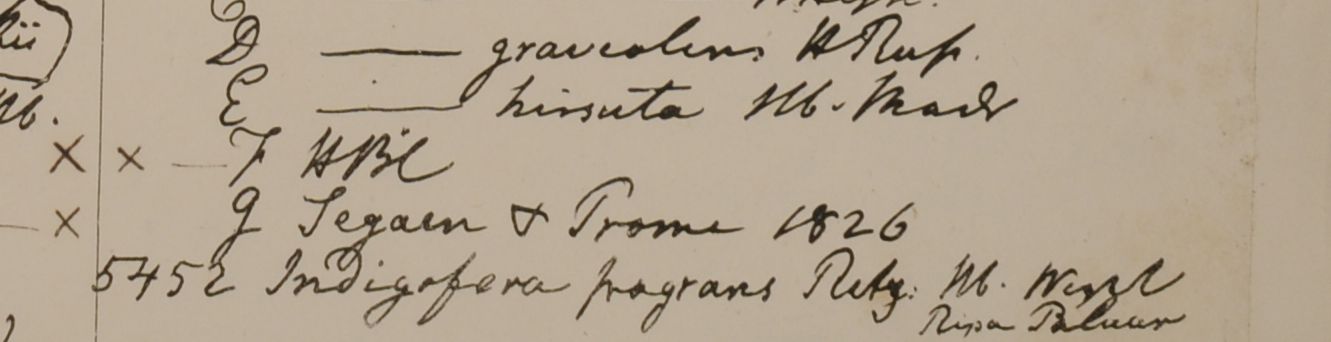 D —— graveolens HRuss.
E —— hirsuta Hb. Madr
× × — F HBC
— × G Segaen & Prome 1826
5452 Indigofera fragrans Retz. Hb. Wight
Ripa